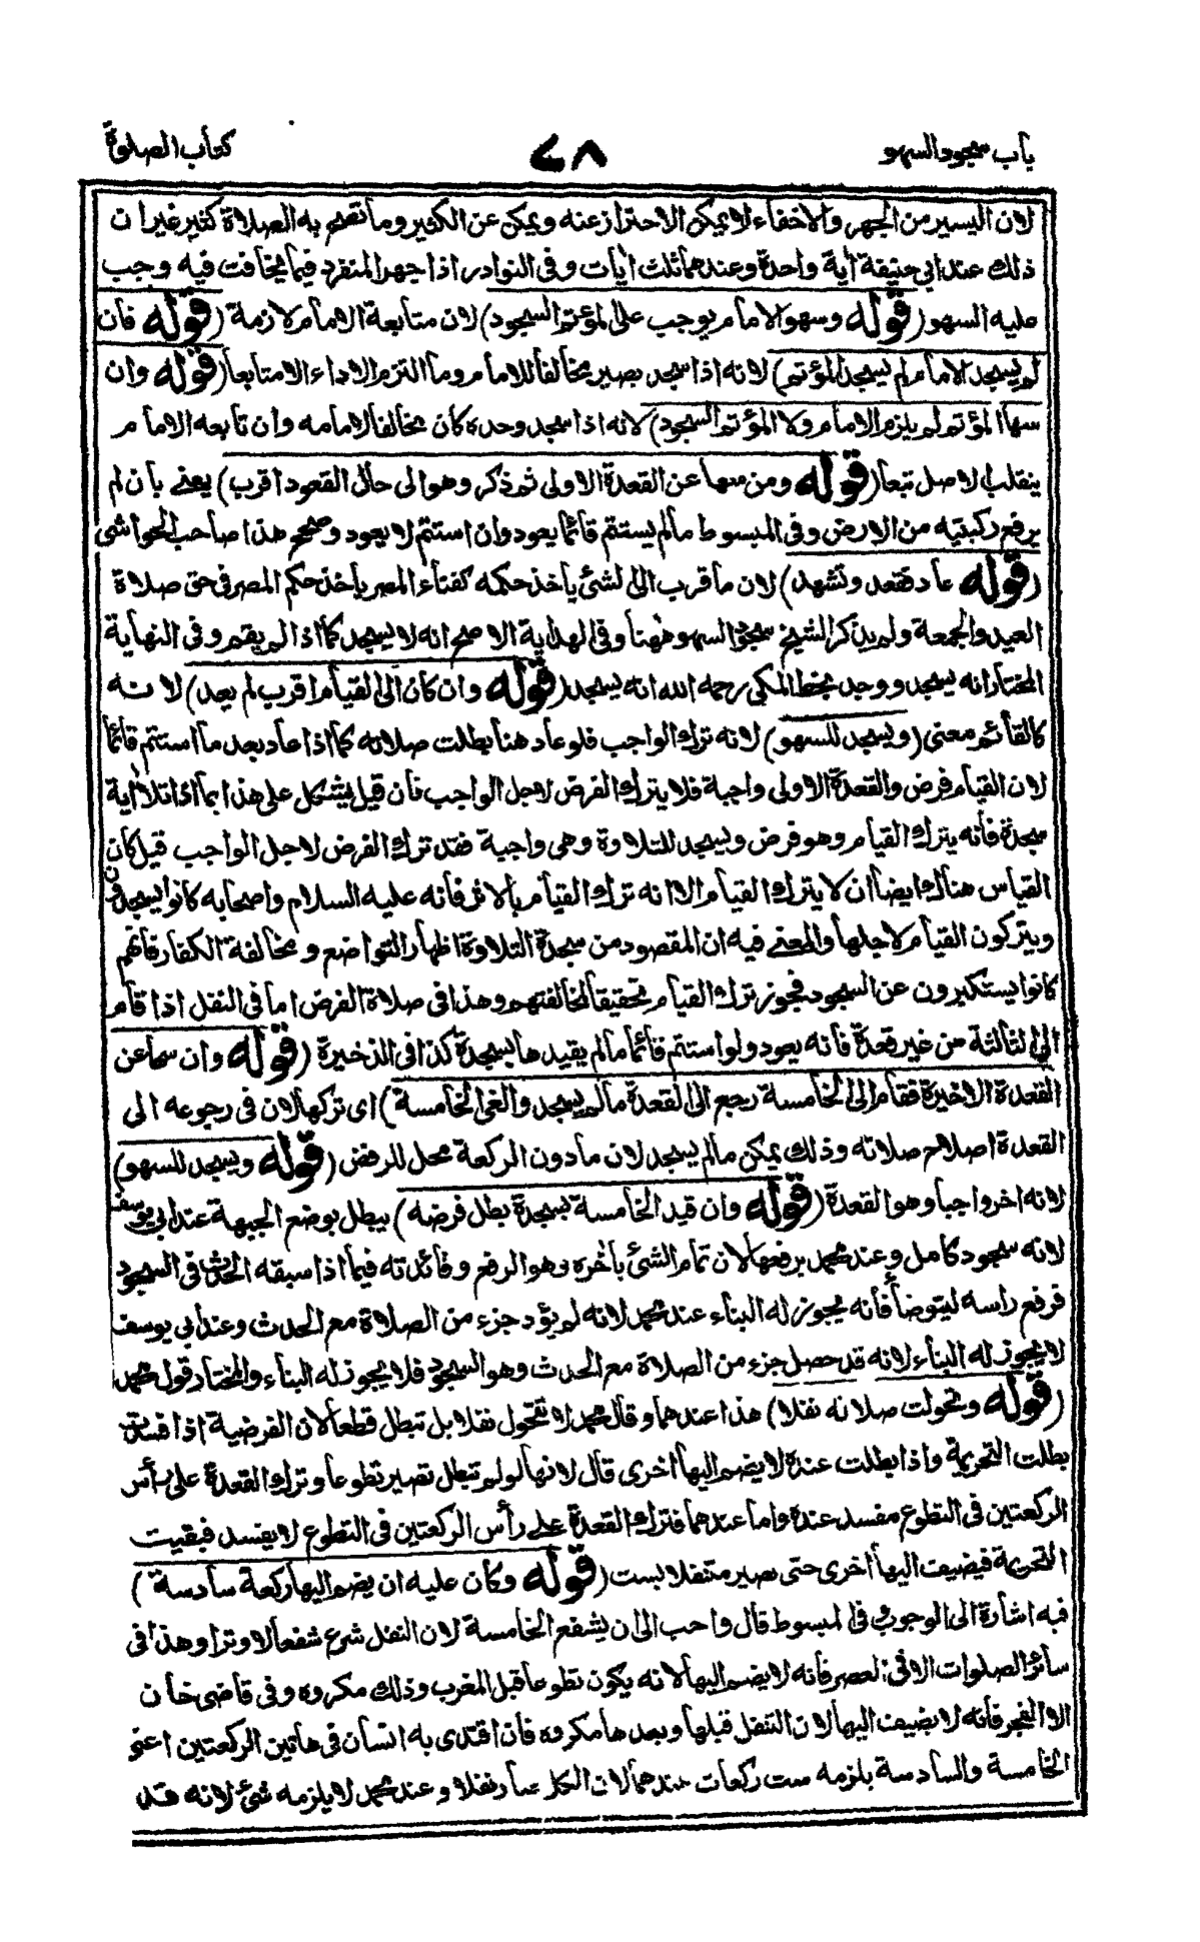 باب سجود السهو
٧٨
كتاب الصلوة
لان اليسير من الجهر والاخفاء لا يمكن الاحتراز عنه ويمكن عن الكثير وما تصح به الصلاة كثير غير ان
ذلك عند ابي حنيفة أية واحدة وعندهما ثلث أيات وفى النوادر اذا جهر المنفرد فيما يخافت فيه وجب
عليه السهو (قوله وسهو الامام يوجب على المؤتم السجود) لان متابعة الامام لازمة (قوله فان
لم يسجد الامام لم يسجد المؤتم) لانه اذا سجد يصير مخالفا للامام وما التزم الاداء الا متابعا (قوله وان
سها المؤتم لم يلزم الامام ولا المؤتم السجود) لانه اذا سجد وحده كان مخالفا لامامه وان تابعه الامام
ينقلب الاصل تبعا (قوله ومن سها عن القعدة الاولى ثم ذكر وهو الى حال القعود اقرب) يعنى بان لم
يرفع ركبتيه من الارض وفى المبسوط مالم يستتم قائما يعود وان استتم لا يعود وصحح هذا صاحب الحواشى
(قوله عاد فقعد وتشهد) لان ما قرب الى الشئ يأخذ حكمه كفناء المصر يأخذ حكم المصر فى حق صلاة
العيد والجمعة ولم يذكر الشيخ سجود السهو ههنا وفى الهداية الاصح انه لا يسجد كما اذا لم يقم وفى النهاية
المختار انه يسجد ووجد بخط المكى رحمه الله انه يسجد (قوله وان كان الى القيام اقرب لم يعد) لانه
كالقائم معنى (ويسجد للسهو) لانه ترك الواجب فلو عاد هنا بطلت صلاته كما اذا عاد بعد ما استتم قائما
لان القيام فرض والقعدة الاولى واجبة فلا يترك الفرض لاجل الواجب فان قيل يشكل على هذا بما اذا تلا أية
سجدة فانه يترك القيام وهو فرض ويسجد للتلاوة وهى واجبة فقد ترك الفرض لاجل الواجب قيل كان
القياس هناك ايضا ان لا يترك القيام الا انه ترك القيام بالاثر فانه عليه السلام واصحابه كانوا يسجدون
ويتركون القيام لاجلها والمعنى فيه ان المقصود من سجدة التلاوة اظهار التواضع ومخالفة الكفار فانهم
كانوا يستكبرون عن السجود فجوز ترك القيام تحقيقا لمخالفتهم وهذا فى صلاة الفرض اما فى النفل اذا قام
الى الثالثة من غير قعدة فانه يعود ولو استتم قائما مالم يقيدها بسجدة كذا فى الذخيرة (قوله وان سها عن
القعدة الاخيرة فقام الى الخامسة رجع الى القعدة مالم يسجد والغى الخامسة) اى تركها لان فى رجوعه الى
القعدة اصلاح صلاته وذلك يمكن مالم يسجد لان مادون الركعة محل للرفض (قوله ويسجد للسهو)
لانه اخر واجبا وهو القعدة (قوله وان قيد الخامسة بسجدة بطل فرضه) يبطل بوضع الجبهة عند ابى يوسف
لانه سجود كامل وعند محمد برفعها لان تمام الشئ بأخره وهو الرفع وفائدته فيما اذا سبقه الحدث فى السجود
فرفع راسه ليتوضأ فانه يجوز له البناء عند محمد لانه لم يؤد جزء من الصلاة مع الحدث وعند ابى يوسف
لا يجوز له البناء لانه قد حصل جزء من الصلاة مع الحدث وهو السجود فلا يجوز له البناء والمختار قول محمد
(قوله وتحولت صلاته نفلا) هذا عندهما وقال محمد لا تتحول نفلا بل تبطل قطعا لان الفرضية اذا فسدت
بطلت التحريمة واذا بطلت عنده لا يضم اليها اخرى قال لانها لو لم تبطل تصير تطوعا وترك القعدة على رأس
الركعتين فى التطوع مفسد عنده واما عندهما فترك القعدة على رأس الركعتين فى التطوع لا يفسد فبقيت
التحريمة فيضيف اليها اخرى حتى يصير متنفلا بست (قوله وكان عليه ان يضم اليها ركعة سادسة)
فيه اشارة الى الوجوب وفى المبسوط قال واحب الى ان يشفع الخامسة لان النفل شرع شفعا لا وترا وهذا فى
سائر الصلوات الا فى العصر فانه لا يضم اليها لانه يكون تطوعا قبل المغرب وذلك مكروه وفى قاضى خان
الا الفجر فانه لا يضيف اليها لان التنفل قبلها وبعدها مكروه فان اقتدى به انسان فى هاتين الركعتين اعنى
الخامسة والسادسة يلزمه ست ركعات عندهما لان الكل صار نفلا وعند محمد لا يلزمه شئ لانه قد